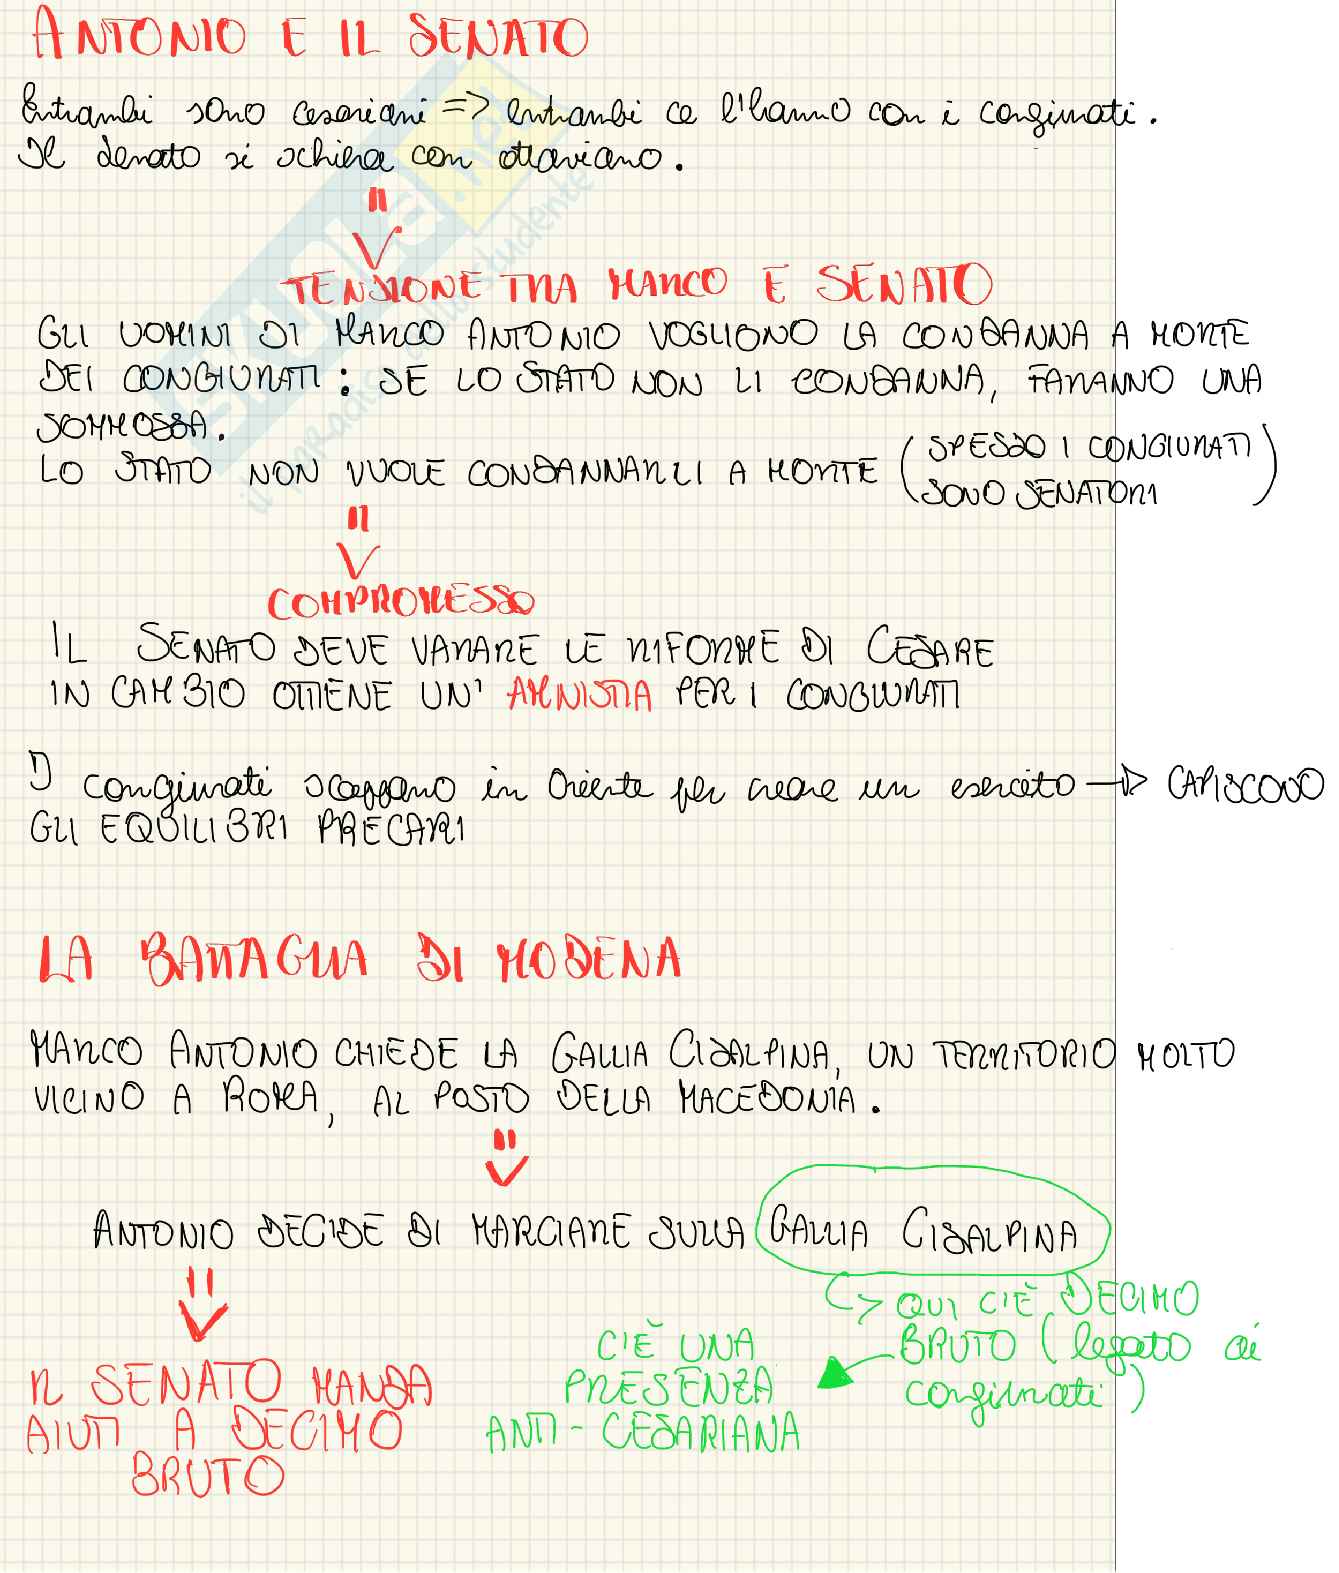 ANTONIO E IL SENATO
Entrambi sono cesariani => entrambi ce l'hanno con i congiurati.
Il senato si schiera con ottaviano.
TENSIONE TRA MARCO E SENATO
GLI UOMINI DI MARCO ANTONIO VOGLIONO LA CONDANNA A MORTE
DEI CONGIURATI: SE LO STATO NON LI CONDANNA, FARANNO UNA
SOMMOSSA.
LO STATO NON VUOLE CONDANNARLI A MORTE (SPESSO I CONGIURATI
SONO SENATORI)
COMPROMESSO
IL SENATO DEVE VARARE LE RIFORME DI CESARE
IN CAMBIO OTTIENE UN' AMNISTIA PER I CONGIURATI
I congiurati scappano in Oriente per creare un esercito → CAPISCONO
GLI EQUILIBRI PRECARI
LA BATTAGLIA DI MODENA
MARCO ANTONIO CHIEDE LA GALLIA CISALPINA, UN TERRITORIO MOLTO
VICINO A ROMA, AL POSTO DELLA MACEDONIA.
ANTONIO DECIDE DI MARCIARE SULLA GALLIA CISALPINA
QUI C'È DECIMO
BRUTO (legato ai
congiurati)
C'È UNA
PRESENZA
ANTI-CESARIANA
IL SENATO MANDA
AIUTI A DECIMO
BRUTO
SKUOLA.net
il paradiso dello studente